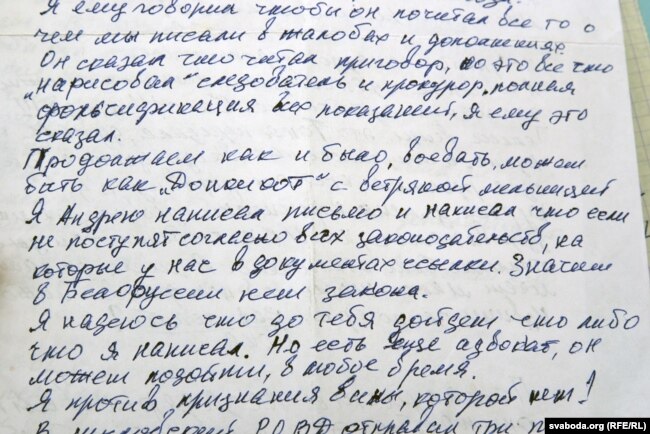 Я ему говорил чтобы он почитал все то о
чем мы писали в жалобах и дополнениях
Он сказал что читал приговор, но это все что
"нарисовал" следователь и прокурор, полная
фальсификация все показаний, я ему это
сказал.
Продолжаем как и было, воевать, может
быть как "Донкихот" с ветряной мельницей
Я Андрею написал письмо и написал что если
не поступят согласно всех законодательств, на
которые у нас в документах ссылки. Значит
в Белоруссии нет закона.
Я надеюсь что до тебя дойдет что либо
что я написал. Но есть еще адвокат, он
может подойти, в любое время.
Я против признания вины, которой нет!
РОВД отправил три
svaboda.org (RFE/RL)